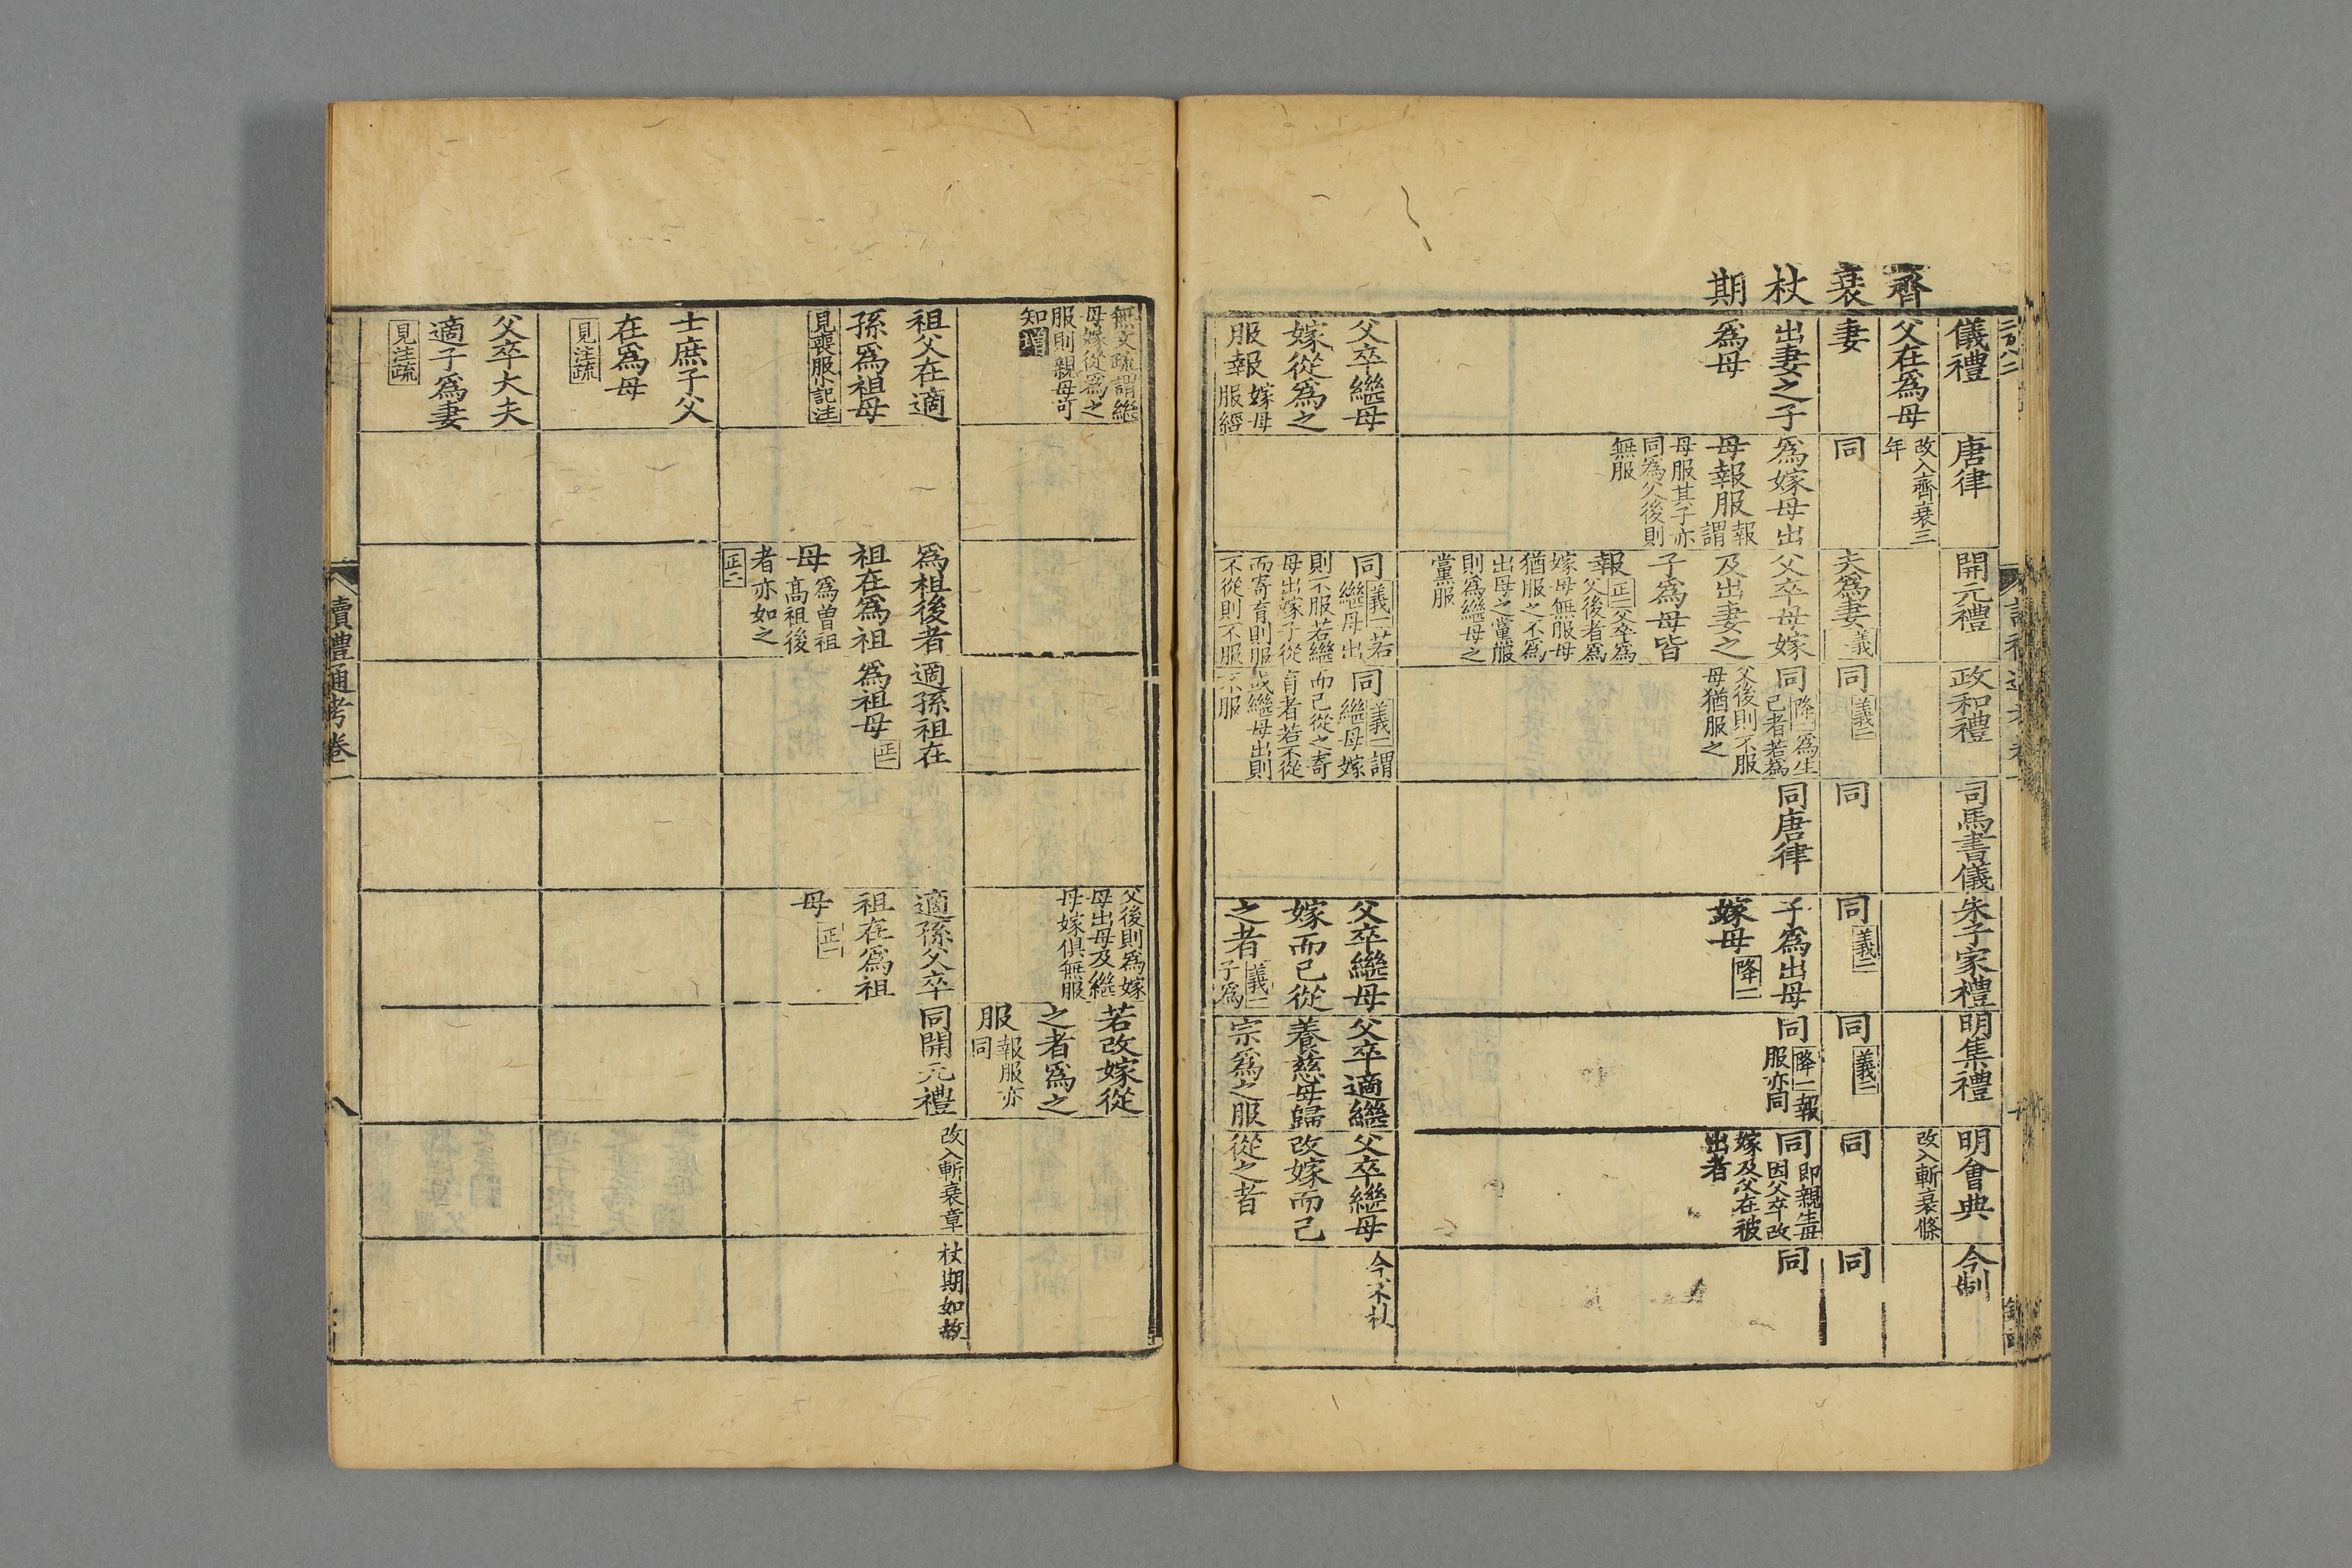 齊衰杖期
儀禮
唐律
開元禮
政和禮
司馬書儀
朱子家禮
明集禮
明會典
今制
父在爲母
改入齊衰三
年
改入斬衰條
妻
同
夫爲妻義
同義二
同
同義二
同義二
同
同
出妻之子
爲母
爲嫁母出
母報服報
謂
母服其子亦
同爲父後則
無服
父卒母嫁
及出妻之
子爲母皆
報正二父卒爲
父後者爲
嫁母無服母
猶服之不爲
出母之黨服
則爲繼母之
黨服
同降一爲生
己者若爲
父後則不服
母猶服之
同唐律
子爲出母
嫁母降二
同降二報
服亦同
同即親生母
因父卒改
嫁及父在被
出者
同
父卒繼母
嫁從爲之
服報嫁母
服經
同義一若
繼母出
則不服若繼
母出嫁子從
而寄育則服
不從則不服
同義二謂
繼母嫁
而己從之寄
育者若不從
或繼母出則
不服
父卒繼母
嫁而己從
之者義二
子爲
父卒適繼
養慈母歸
宗爲之服
父卒繼母
改嫁而己
從之者
今不杖
無文疏謂繼
母嫁從爲之
服則親母可
知增
父後則爲嫁
母出母及繼
母嫁俱無服
若改嫁從
之者爲之
服報服亦
同
祖父在適
孫爲祖母
見喪服小記注
爲祖後者
祖在爲祖
母爲曾祖
高祖後
者亦如之
正二
適孫祖在
爲祖母正二
適孫父卒
祖在爲祖
母正一
同開元禮
改入斬衰章
杖期如故
士庶子父
在爲母
見注疏
父卒大夫
適子爲妻
見注疏
讀禮通考卷一
八